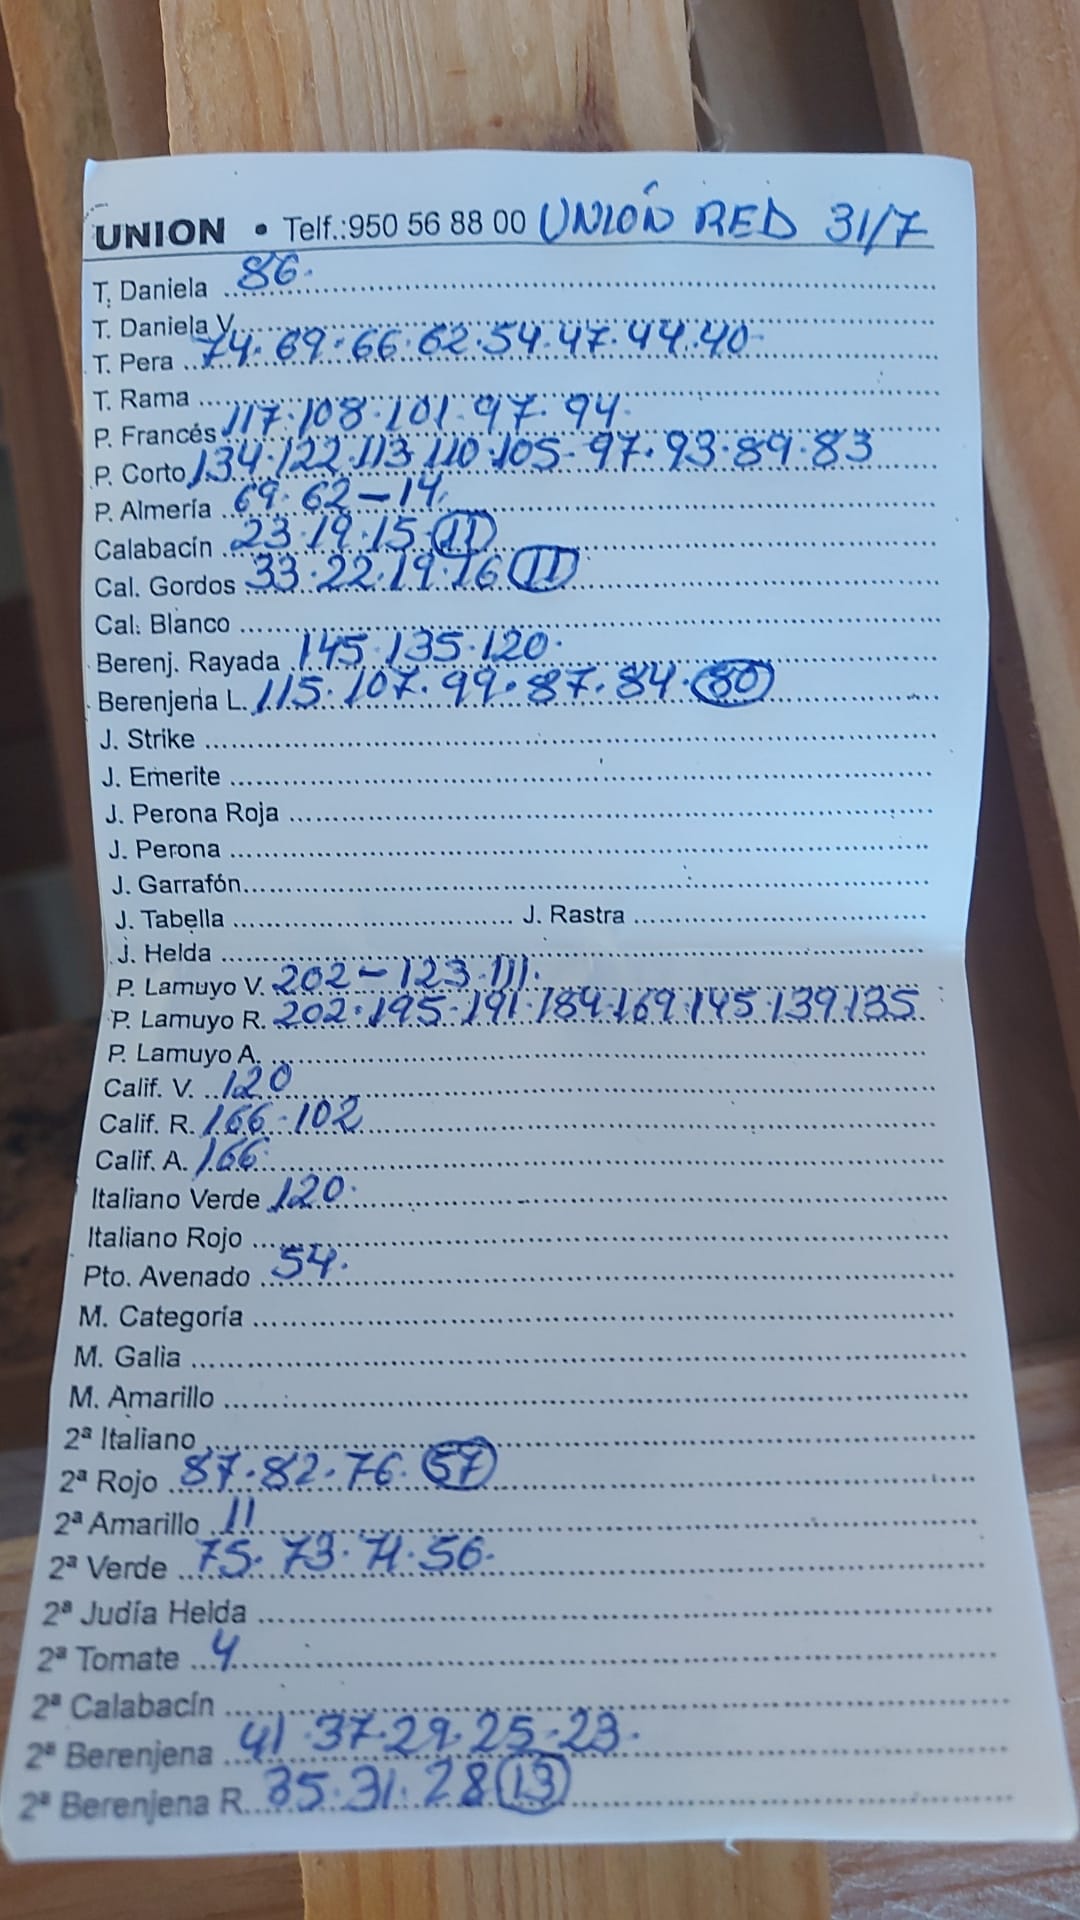 UNION • Telf.:950 56 88 00 UNIÓN RED 31/7
T. Daniela 86.
T. Daniela V.
T. Pera 74. 69. 66. 62. 54. 47. 44. 40-
T. Rama
P. Francés 117. 108. 101. 97. 94.
P. Corto 134. 122. 113. 110. 105- 97. 93. 89. 83
P. Almería 69. 62 - 14.
Calabacín 23. 19. 15. 11
Cal. Gordos 33. 22. 19. 16 11
Cal. Blanco
Berenj. Rayada 145. 135. 120.
Berenjena L. 115. 107. 99. 87. 84. 80
J. Strike
J. Emerite
J. Perona Roja
J. Perona
J. Garrafón
J. Tabella J. Rastra
J. Helda
P. Lamuyo V. 202 - 123. 111.
P. Lamuyo R. 202. 195. 191. 184. 169. 145. 139. 135
P. Lamuyo A.
Calif. V. 120
Calif. R. 166- 102
Calif. A. 166.
Italiano Verde 120.
Italiano Rojo
Pto. Avenado 54.
M. Categoría
M. Galia
M. Amarillo
2ª Italiano
2ª Rojo 87. 82. 76. 57
2ª Amarillo 11
2ª Verde 75. 73. 71. 56.
2ª Judía Helda
2ª Tomate 4
2ª Calabacín
2ª Berenjena 41. 37. 29. 25- 23.
2ª Berenjena R. 35. 31. 28 13